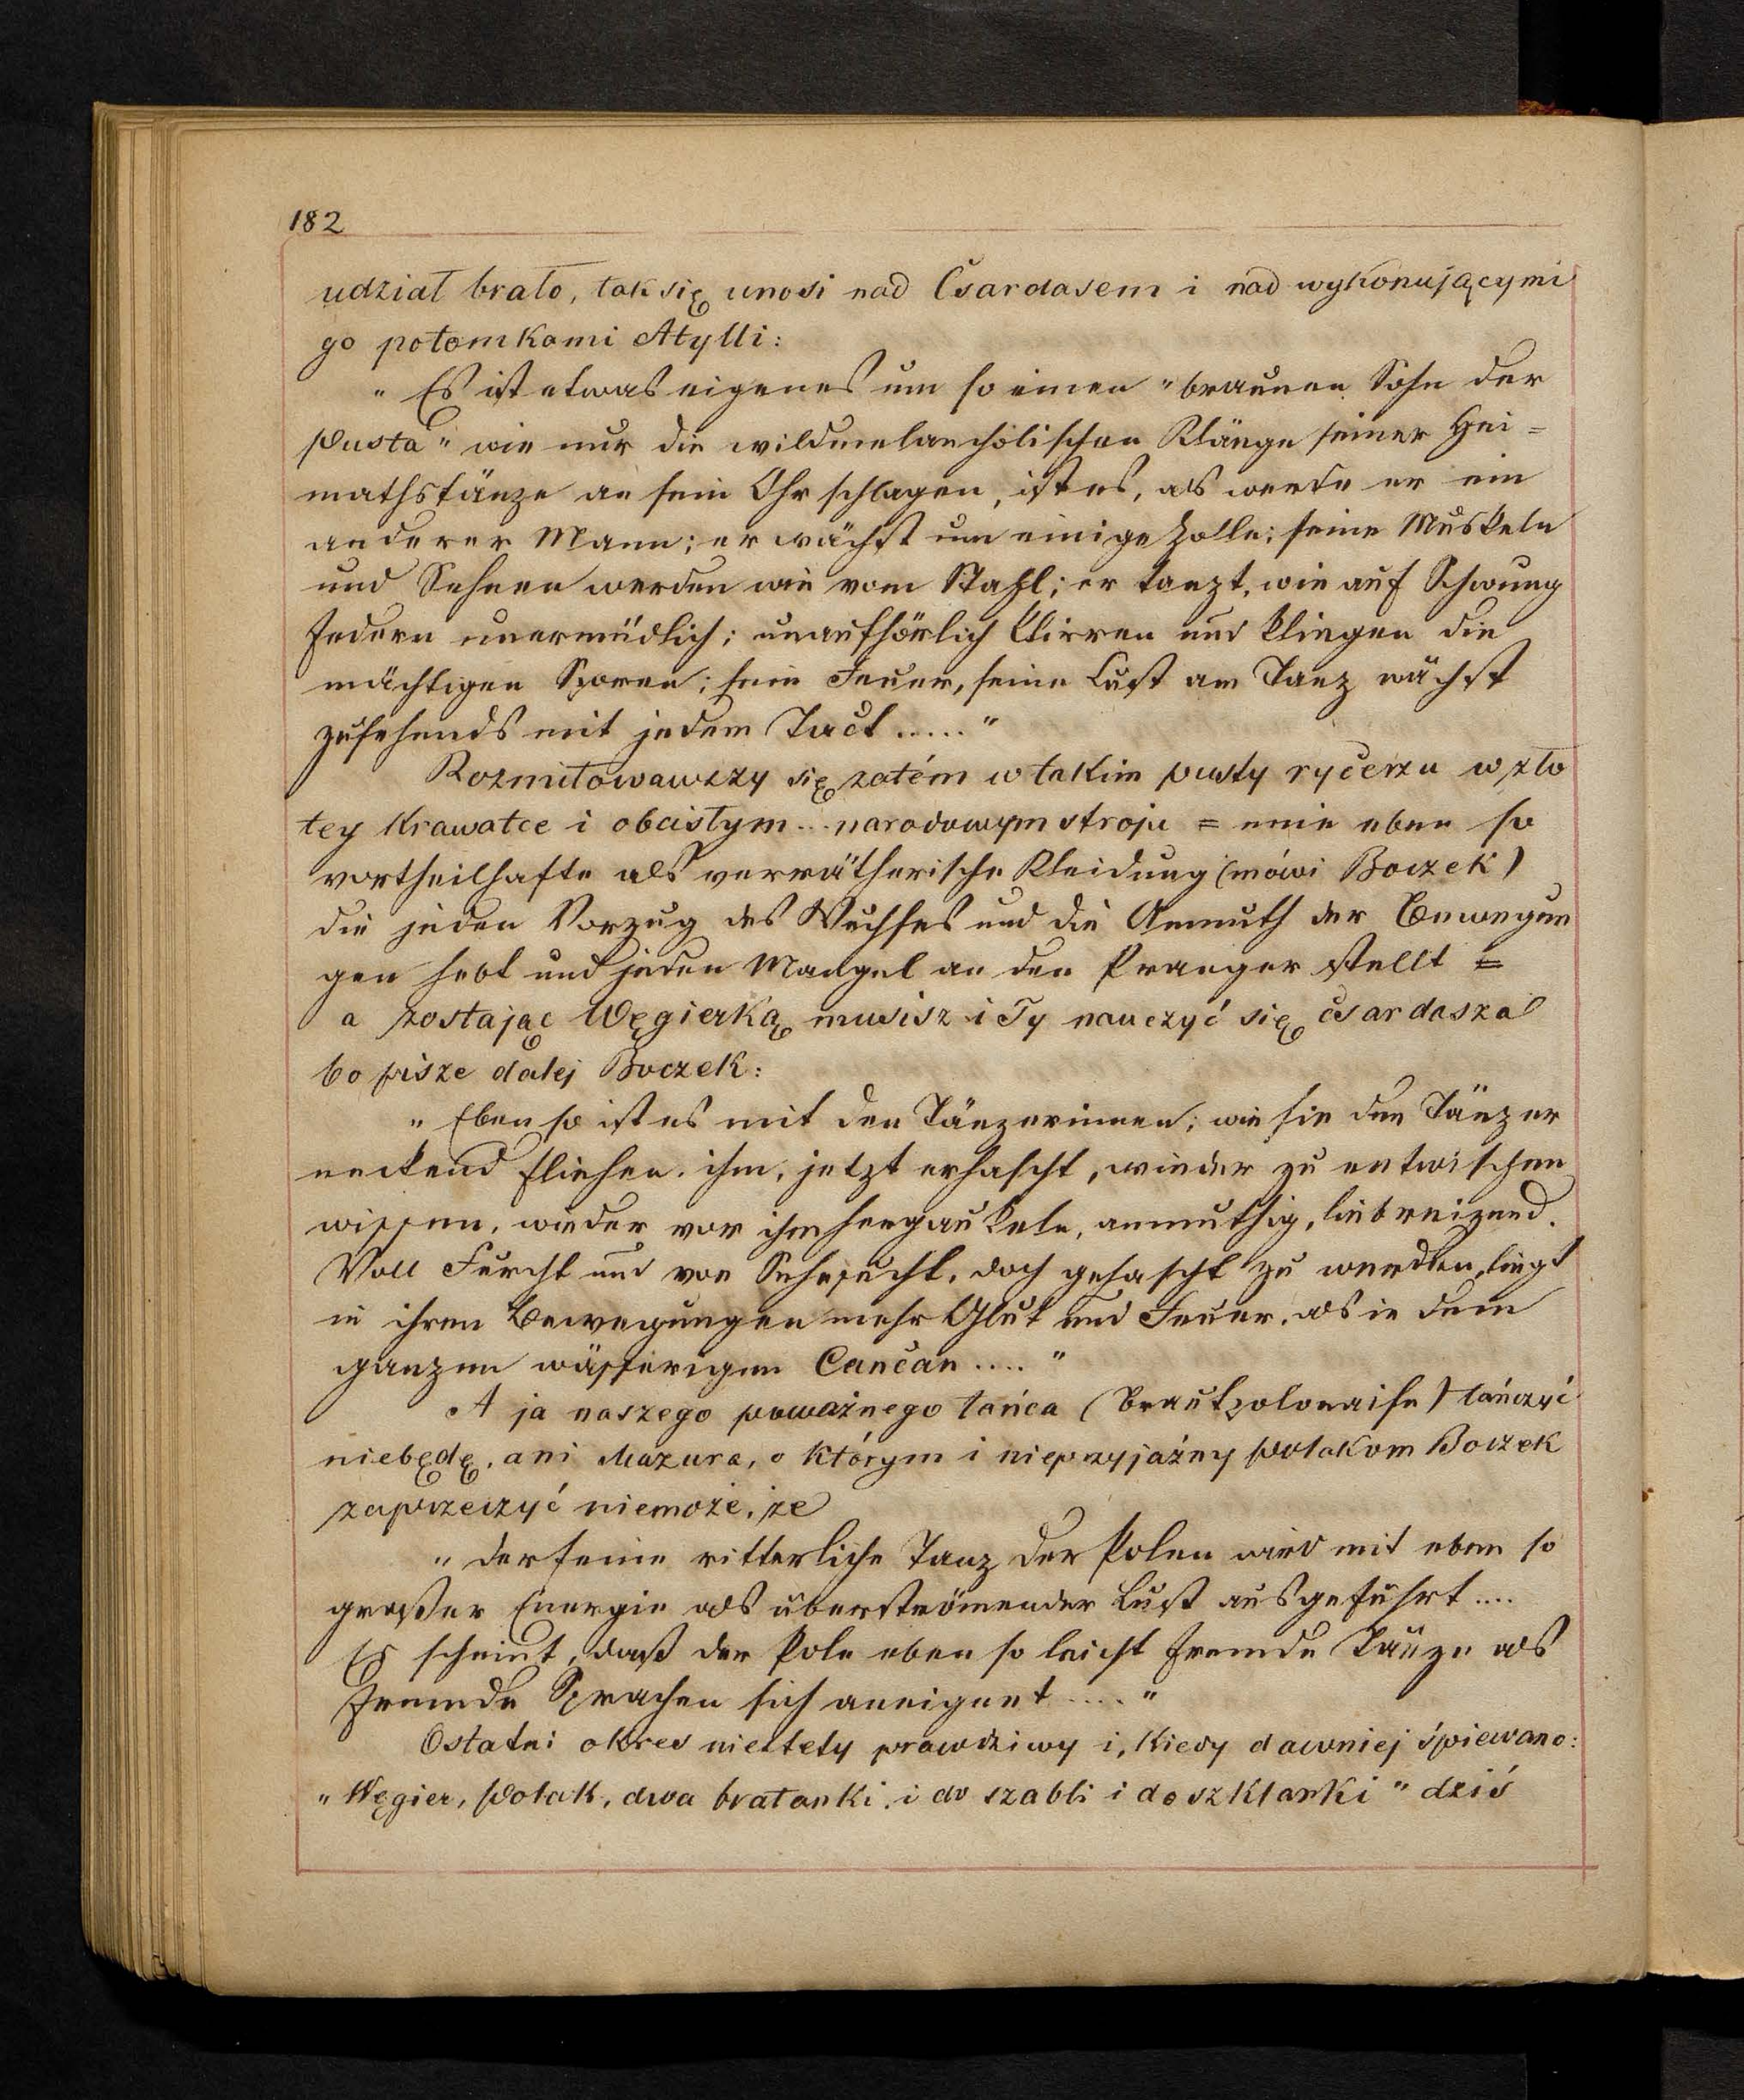 182
udział brało, tak się unosi nad Csardasem i nad wykonującymi
go potomkami Atylli:
„Es ist etwas eigenes um so einen „braunen Sohn der
Pusta" wie nur die wildmelancholischen Klänge seiner Hei=
mathstänze an sein Ohr schlagen, ist es, als werde er ein
anderer Mann; er wächst um einige Zolle; seine Muskeln
und Sehnen werden wie vom Stahl; er tanzt, wie auf Schwung
federn unermüdlich; unaufhörlich klirren und klingen die
mächtigen Sporen; sein Feuer, seine Lust am Tanz wächst
zusehends mit jedem Tact ....."
Rozmiłowawszy się zatém w takim pusty rycerzu w zło
tey Krawatce i obcisłym ... narodowym stroju = eine eben so
vortheilhafte als verrätherische Kleidung (mówi Boczek)
die jeden Vorzug des Wuchses und die Anmuth der Bewegun
gen hebt und jeden Mangel an den Pranger stellt =
a zostając Węgierką musisz i Ty nauczyć się csardasza
bo pisze dalej Boczek:
„Eben so ist es mit den Tänzerinnen; wie sie den Tänzer
neckend fliehen, ihm, jetzt erhascht, wieder zu entwischen
wissen, wieder vor ihm hergaukeln, anmuthig, liebreizend.
Voll Furcht und von Sehnsucht, doch gehascht zu werden, liegt
in ihren Bewegungen mehr Glut und Feuer, als in dem
ganzen wässerigen Cancan ...."
A ja naszego poważnego tańca (Brautpolonaise) tańczyć
niebędę, ani Mazura, o którym i nieprzyjaźny polakom Boczek
zaprzeczyć niemoże, że
„der feine ritterliche Tanz der Polen wird mit eben so
großer Energie als überströmender Lust ausgeführt ....
Es scheint, daß der Pole eben so leicht fremde Tänze als
fremde Sprachen sich aneignet ...."
Ostatni okres niestety prawdziwy i, Kiedy dawniej śpiewano:
„Węgier, Polak, dwa bratanki, i do szabli i do szklanki" dziś